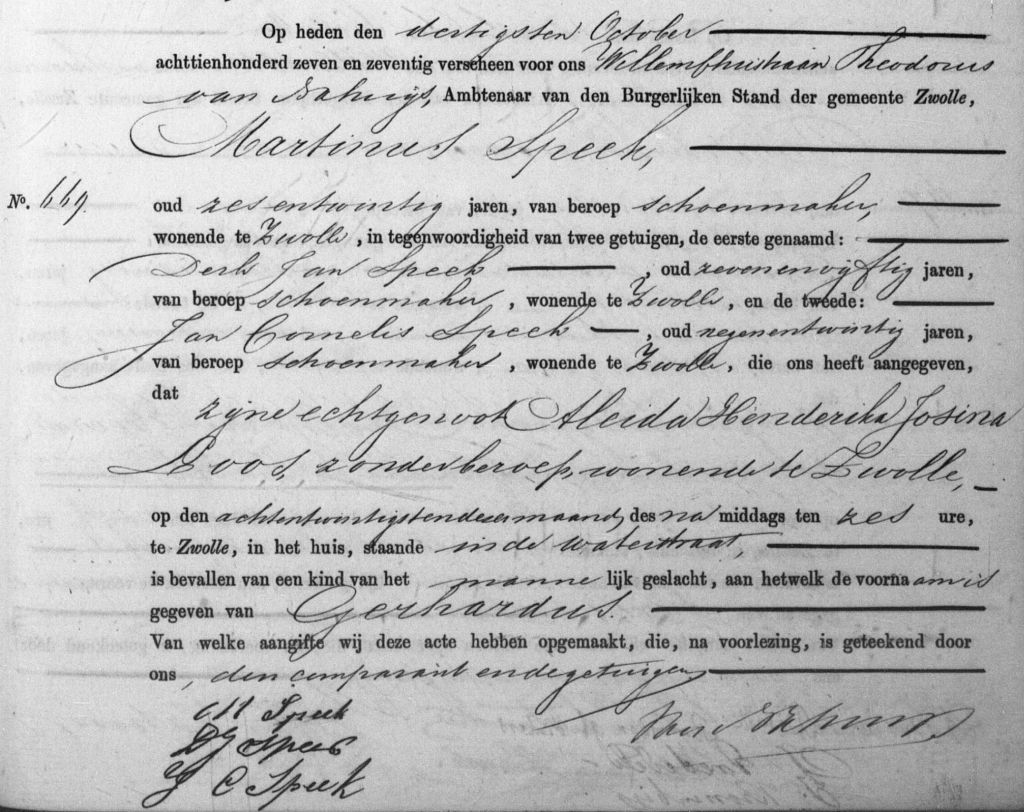 Op heden den dertigsten October
achttienhonderd zeven en zeventig verscheen voor ons Theodorus
van , Ambtenaar van den Burgerlijken Stand der gemeente Zwolle,
Martinus Speek,
No. 669. oud zesentwintig jaren, van beroep schoenmaker,
wonende te Zwolle, in tegenwoordigheid van twee getuigen, de eerste genaamd:
Derk Jan Speek, oud zevenenvijftig jaren,
van beroep schoenmaker, wonende te Zwolle, en de tweede:
Jan Cornelis Speek, oud negenentwintig jaren,
van beroep schoenmaker, wonende te Zwolle, die ons heeft aangegeven,
dat
zijne echtgenoot Aleida Henderika Josina
Roos, zonder beroep, wonende te Zwolle,
op den achtentwintigsten dezer maand, des na middags ten zes ure,
te Zwolle, in het huis, staande in de Waterstraat
is bevallen van een kind van het manne lijk geslacht, aan hetwelk de voorna am is
gegeven van Gerhardus.
Van welke aangifte wij deze acte hebben opgemaakt, die, na voorlezing, is geteekend door
ons, den comparant en de getuigen
M Speek
DJ Speek
J C Speek